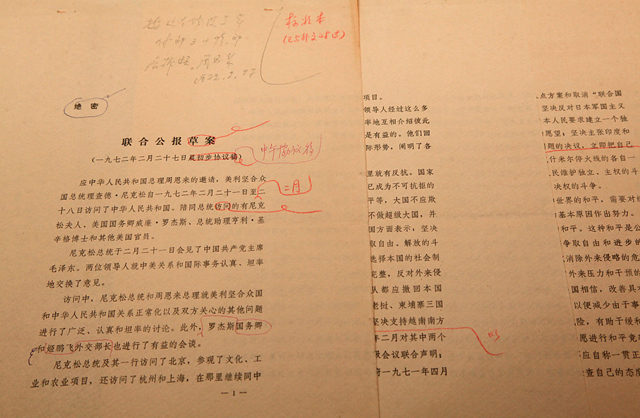 绝密
联合公报草案
(一九七二年二月二十七日最初步协议稿)
应中华人民共和国总理周恩来的邀请,美利坚合众
国总统理查德·尼克松自一九七二年二月二十一日至二
十八日访问了中华人民共和国。陪同总统访问的有尼克
松夫人、美国国务卿威廉·罗杰斯、总统助理亨利·基
辛格博士和其他美国官员。
尼克松总统于二月二十一日会见了中国共产党主席
毛泽东。两位领导人就中美关系和国际事务认真、坦率
地交换了意见。
访问中,尼克松总统和周恩来总理就美利坚合众国
和中华人民共和国关系正常化以及双方关心的其他问题
进行了广泛、认真和坦率的讨论。此外,罗杰斯国务卿
和姬鹏飞外交部长也进行了有益的会谈。
尼克松总统及其一行访问了北京,参观了文化、工
业和农业项目,还访问了杭州和上海,在那里继续同中
— 1 —
二月
项目。
领导人经过这么多
率地互相介绍彼此
是有益的。他们回
际形势,阐明了各
里就有反抗。国家
已成为不可抗拒的
平等,大国不应欺
不做超级大国,并
国方面表示,坚决
取自由、解放的斗
选择本国的社会制
完整,反对外来侵
队都应撤回本国
老挝、柬埔寨三国
坚决支持越南南方
年二月对其中两个
级会议联合声明;
一九七一年四月
点方案和取消“联合国
坚决反对日本军国主义
本人民要求建立一个独
愿望;坚决主张印度和
题的决议,立即把自己
什米尔停火线的各自一
民维护独立、主权的斗
决权的斗争。
世界的和平,需要对缓
基本原因作出努力。
和平,这种和平是公
争取自由和进步的
消除外来侵略的危
外来压力和干预的
国相信,改善具
以便减少由于事
险,有助于缓和
愿进行和平竞
应自称一贯正
查自己的态度